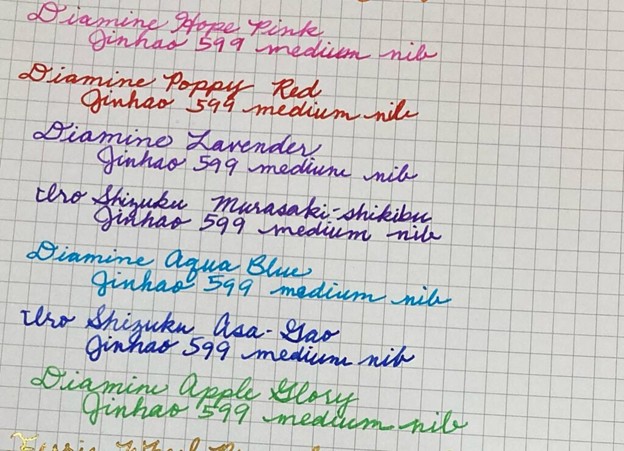 Diamine Hope Pink
Jinhao 599 medium nib
Diamine Poppy Red
Jinhao 599 medium nib
Diamine Lavender
Jinhao 599 medium nib
Iro Shizuku Murasaki-shikibu
Jinhao 599 medium nib
Diamine Aqua Blue
Jinhao 599 medium nib
Iro Shizuku Asa-Gao
Jinhao 599 medium nib
Diamine Apple Glory
Jinhao 599 medium nib
Ferris Wheel